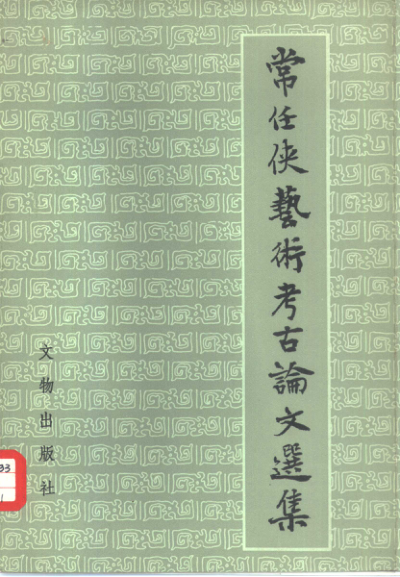 常任侠藝術考古論文選集
文物出版社
33
1